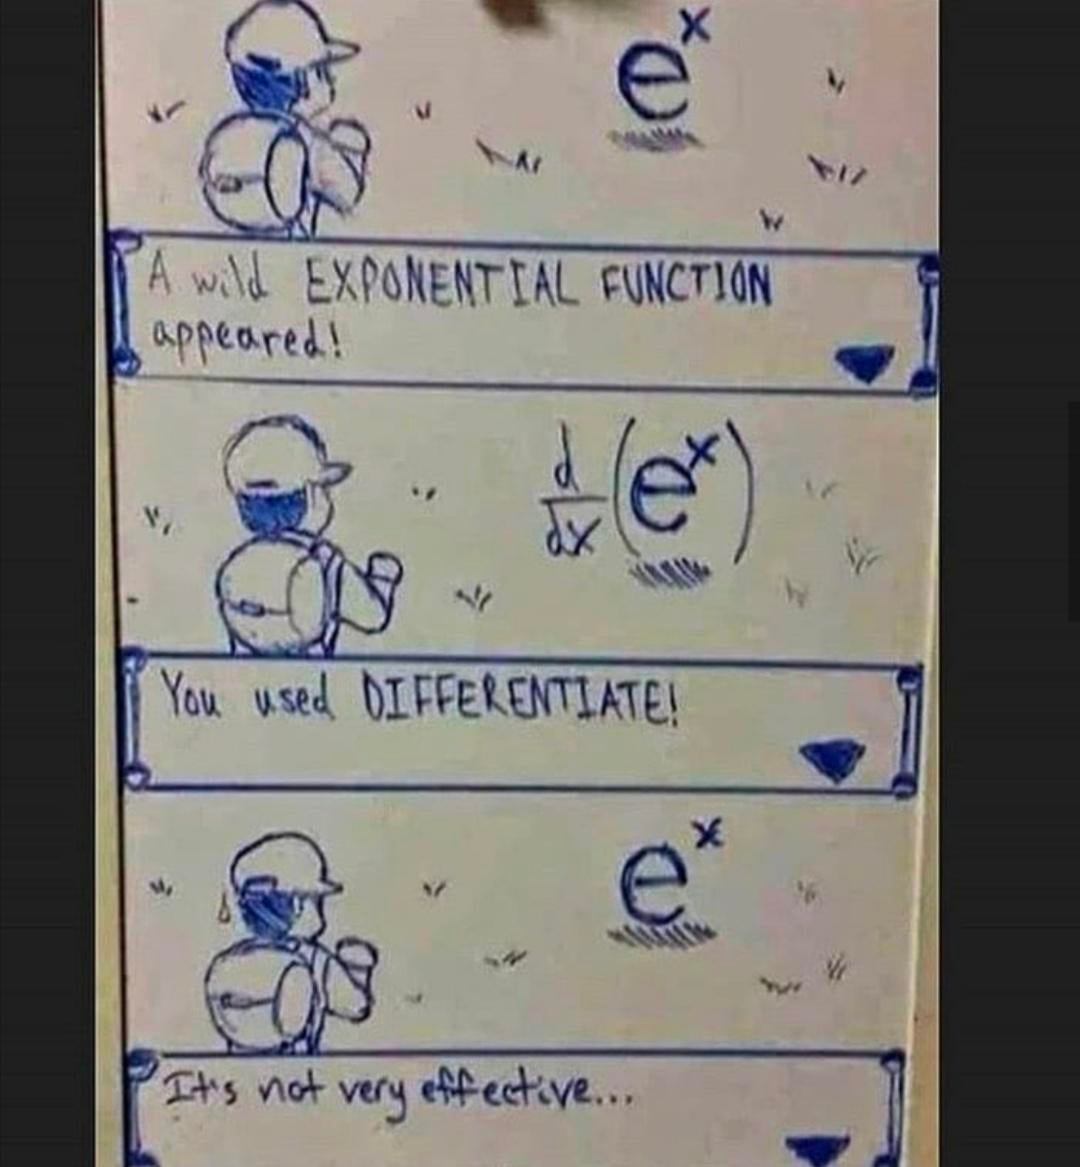 eˣ
A wild EXPONENTIAL FUNCTION
appeared!
d/dx (eˣ)
You used DIFFERENTIATE!
eˣ
It's not very effective...